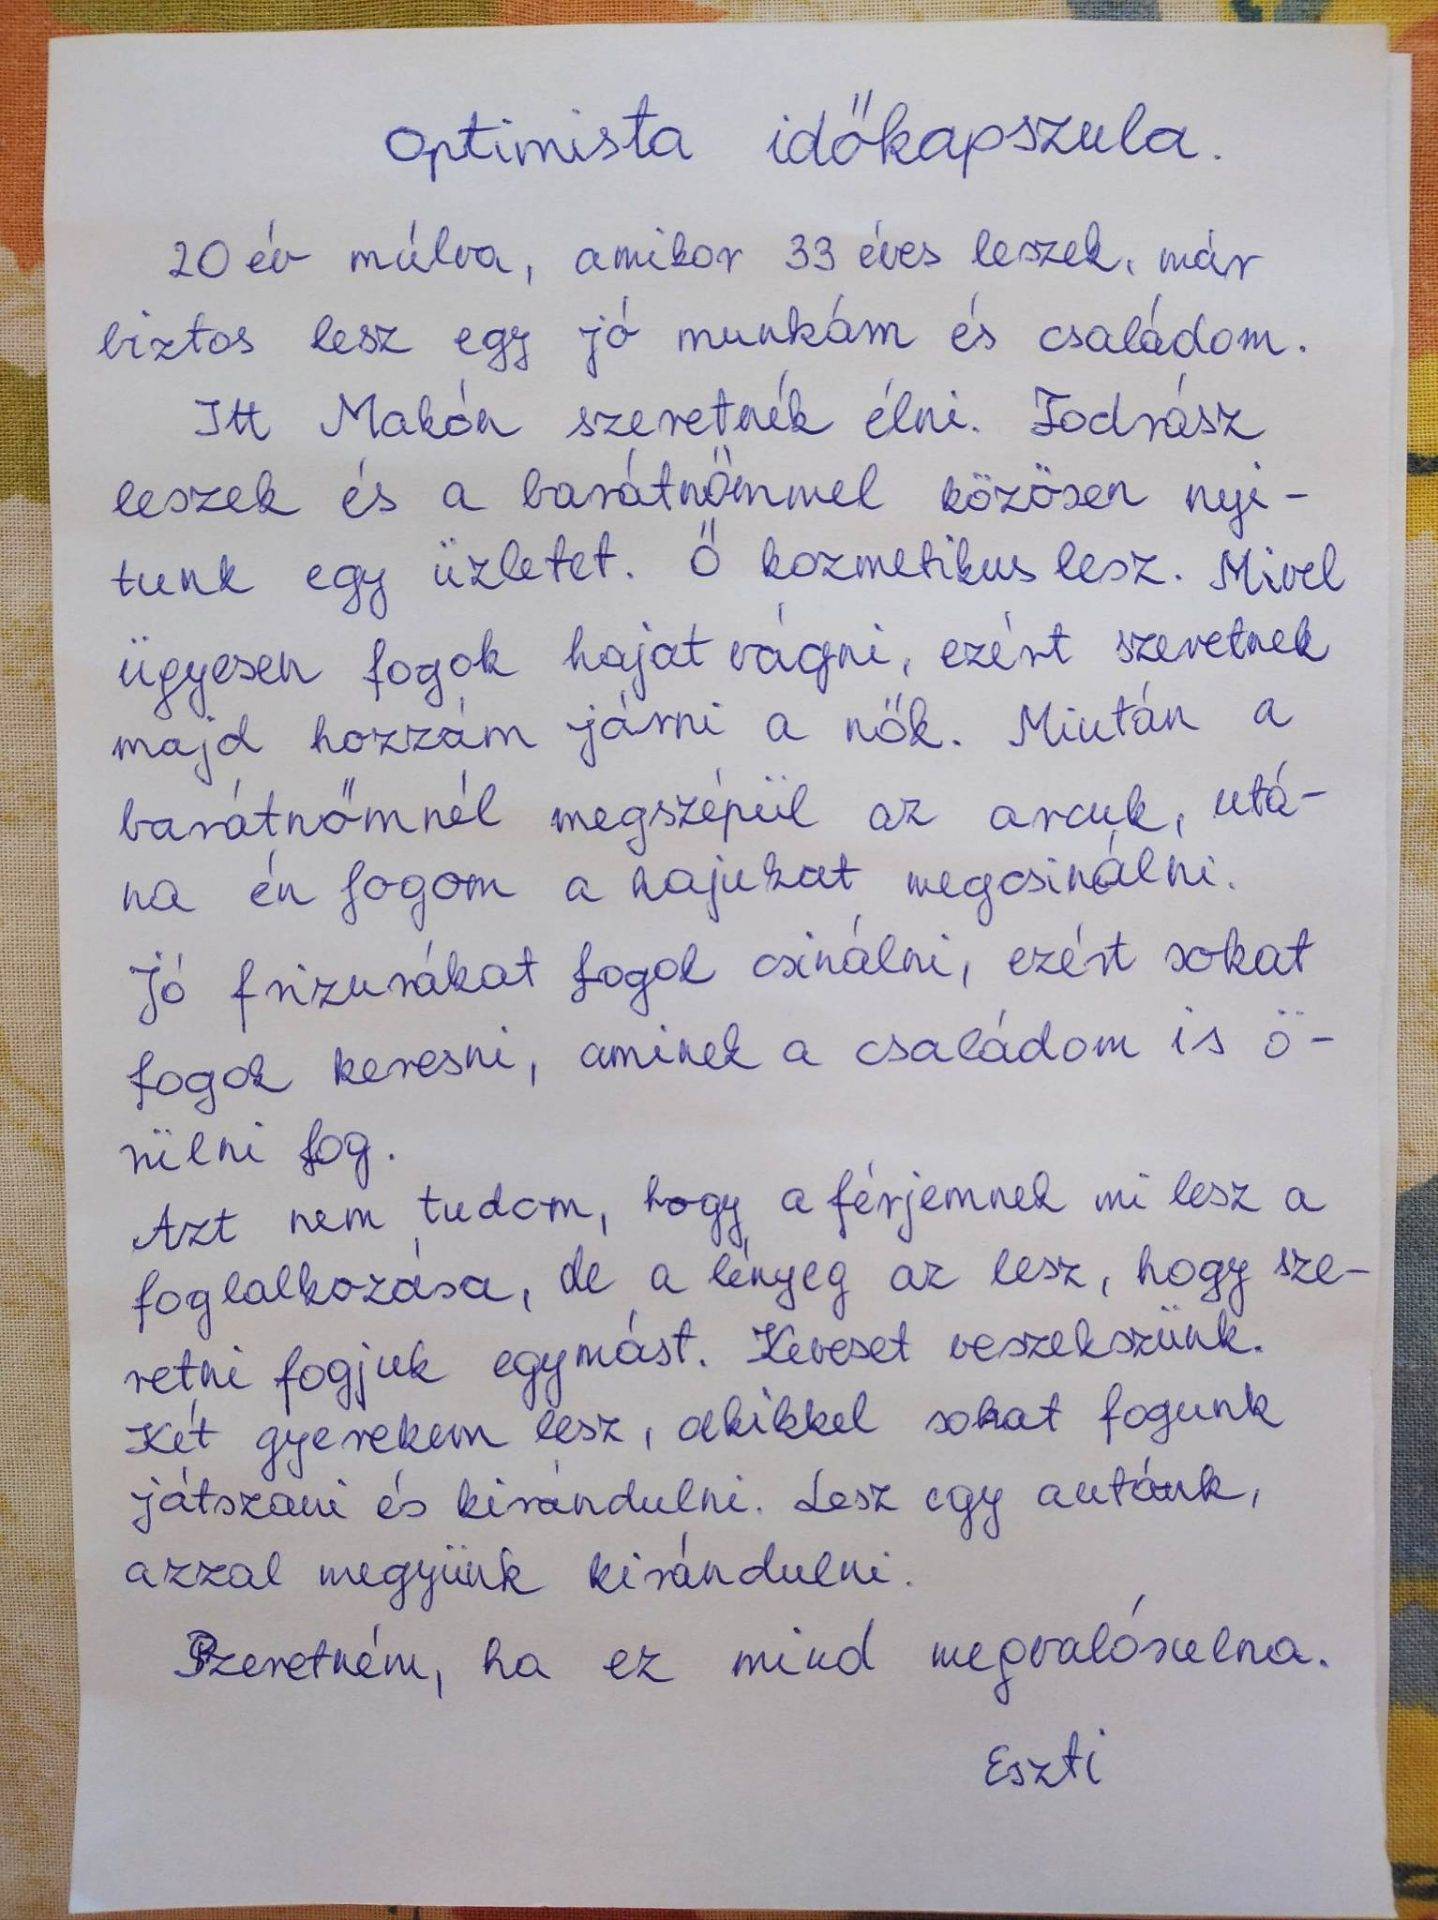 Optimista időkapszula.
20 év múlva, amikor 33 éves leszek, már
biztos lesz egy jó munkám és családom.
Itt Makón szeretnék élni. Fodrász
leszek és a barátnőmmel közösen nyi-
tunk egy üzletet. Ő kozmetikus lesz. Mivel
ügyesen fogok hajat vágni, ezért szeretnek
majd hozzám járni a nők. Miután a
barátnőmnél megszépül az arcuk, utá-
na én fogom a hajukat megcsinálni.
Jó frizurákat fogok csinálni, ezért sokat
fogok keresni, aminek a családom is ö-
rülni fog.
Azt nem tudom, hogy a férjemnek mi lesz a
foglalkozása, de a lényeg az lesz, hogy sze-
retni fogjuk egymást. Keveset veszekszünk.
Két gyerekem lesz, akikkel sokat fogunk
játszani és kirándulni. Lesz egy autónk,
azzal megyünk kirándulni.
Szeretném, ha ez mind megvalósulna.
Eszti